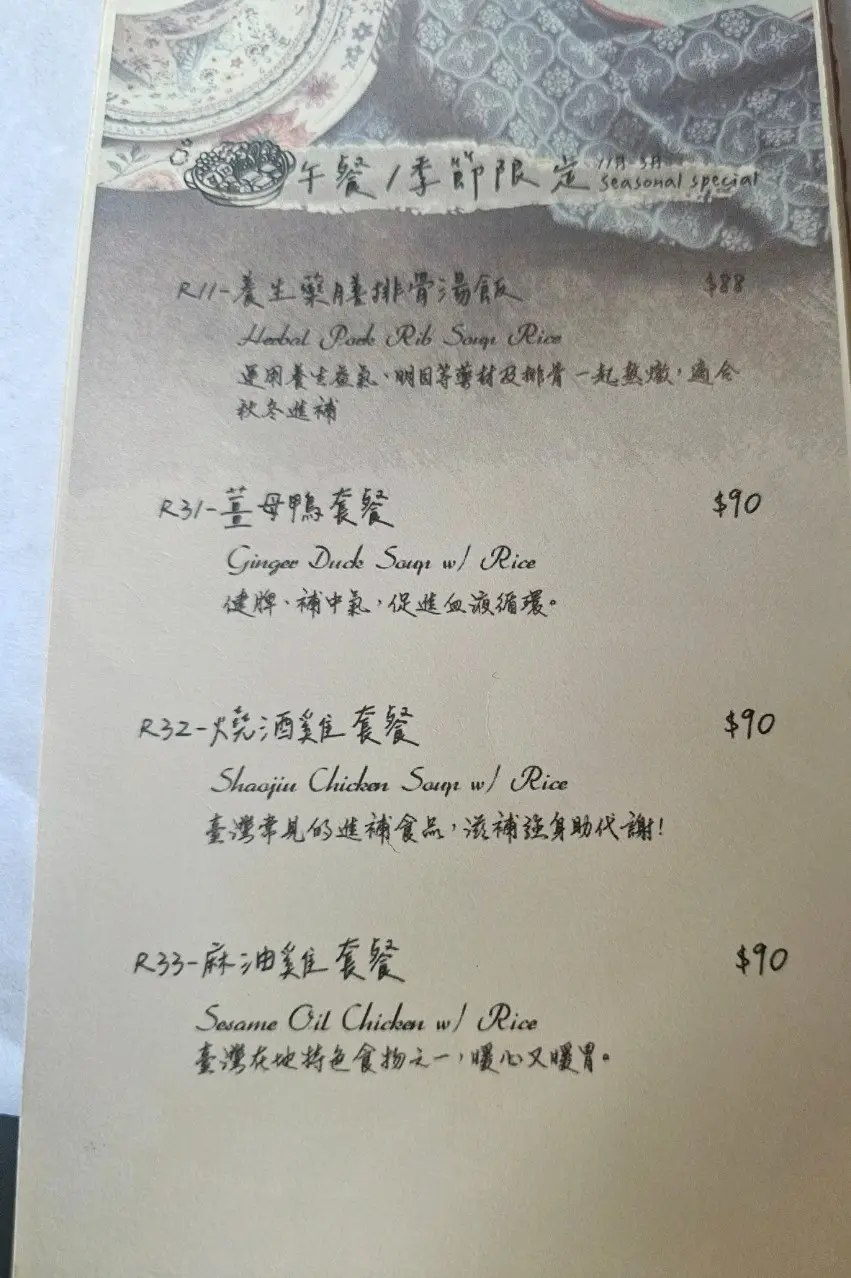 午餐/季節限定 11月-3月 seasonal special
R11-養生藥膳排骨湯飯 $88
Herbal Pork Rib Soup Rice
運用養生益氣、明目等藥材及排骨一起熬燉,適合
秋冬進補
R31-薑母鴨套餐 $90
Ginger Duck Soup w/ Rice
健脾、補中氣,促進血液循環。
R32-燒酒雞套餐 $90
Shaojiu Chicken Soup w/ Rice
臺灣常見的進補食品,滋補強身助代謝!
R33-麻油雞套餐 $90
Sesame Oil Chicken w/ Rice
臺灣在地特色食物之一,暖心又暖胃。